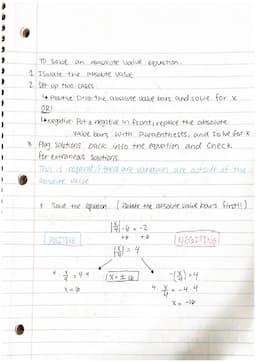 To solve an absolute value equation:
1. Isolate the absolute value
2. Set up two cases
↳ Positive: Drop the absolute value bars and solve for x
OR!
↳ Negative: Put a negative in front, replace the absolute
value bars with parentheses, and solve for x
3. Plug solutions back into the equation and check
for extraneous solutions
This is required if there are variables are outside of the
absolute value
* Solve the equation. (Isolate the absolute value bars first!!)
|x/4| - 6 = -2
POSITIVE NEGATIVE
+6 +6
|x/4| = 4
4 · x/4 = 4 · 4 x = ±16 -(x/4) = 4
x = 16 4 · x/4 = -4 · 4
x = -16